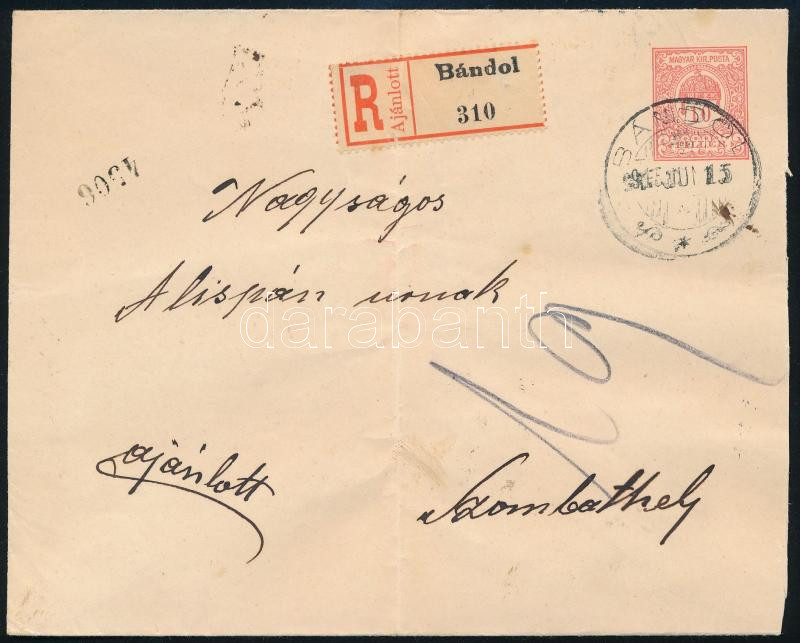 R
Ajánlott
Bándol
310
MAGYAR KIR. POSTA
10
BANDOL
915 JUN 15
4306
Nagyságos
Alispán urnak
19
ajánlott
Szombathely
darabanth